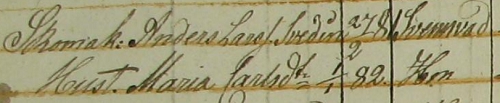 Skomak: Anders Larss. Svedin 27/2 81 Svennevad
Hust. Maria Carlsdtr 1/1 82. Hon